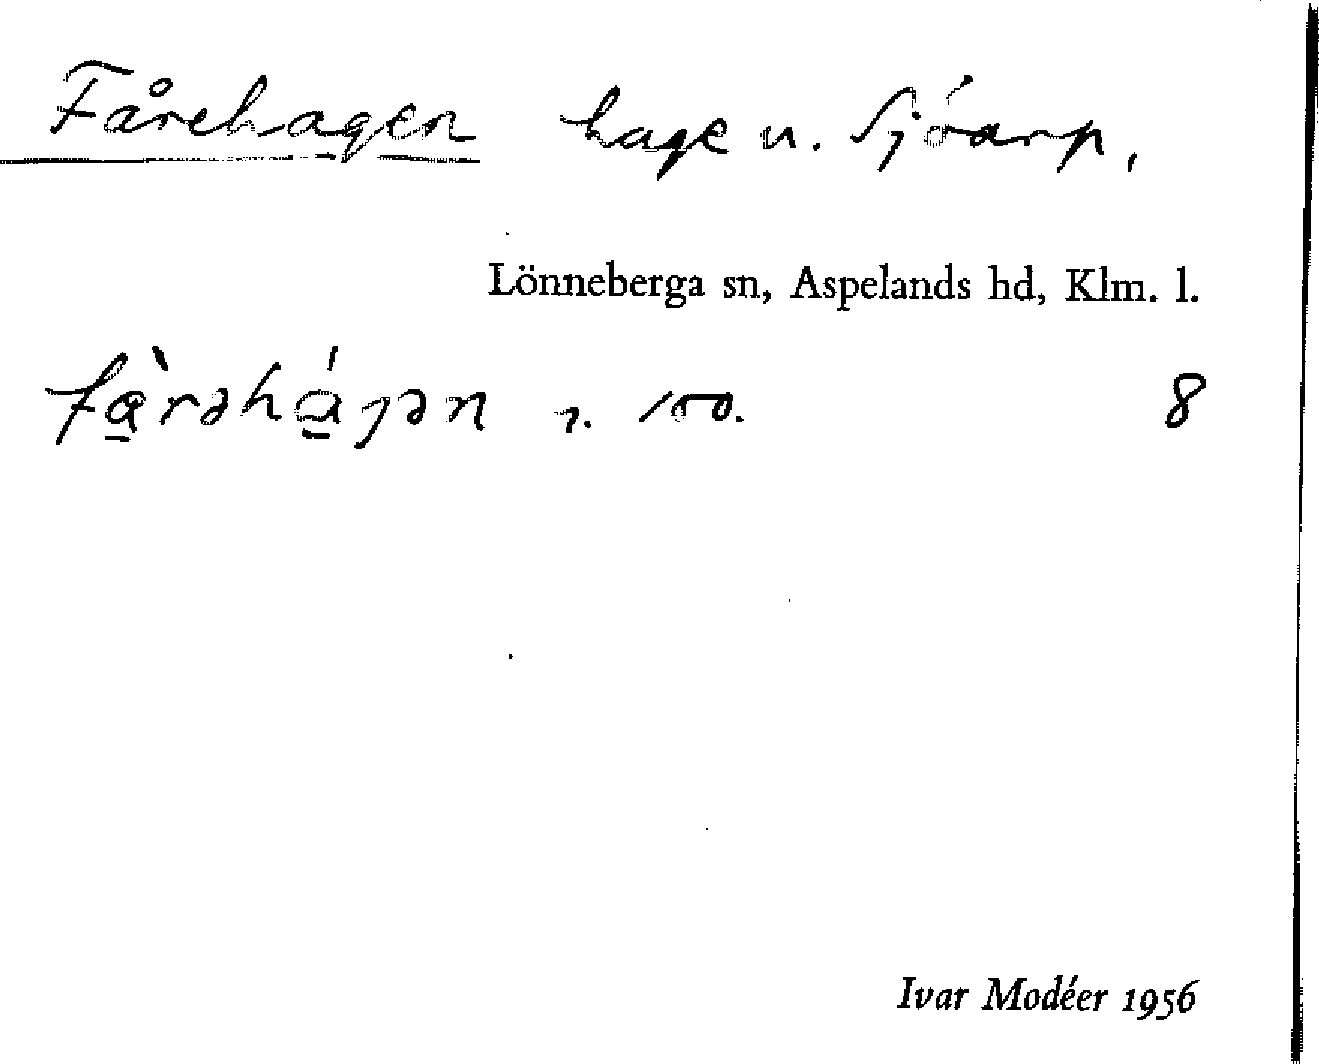 Fårehagen hage u. Sjöarp,
Lönneberga sn, Aspelands hd, Klm. l.
fàrəhájən 8
Ivar Modéer 1956